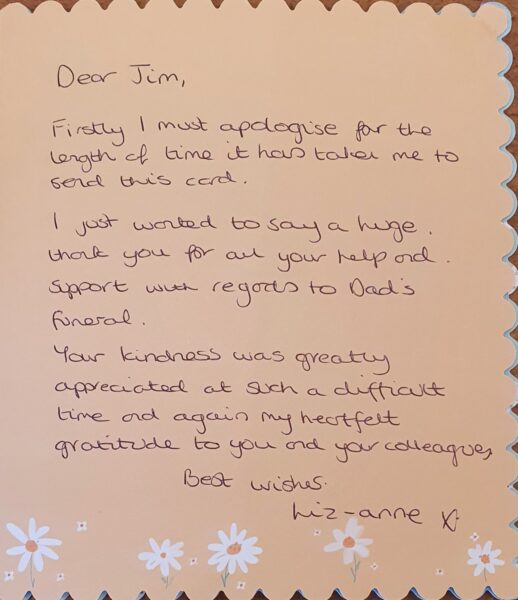 Dear Jim,
Firstly I must apologise for the
length of time it has taken me to
send this card.
I just wanted to say a huge.
thank you for all your help and.
support with regards to Dad's
funeral.
Your kindness was greatly
appreciated at such a difficult
time and again my heartfelt
gratitude to you and your colleagues,
Best wishes.
Liz-anne X